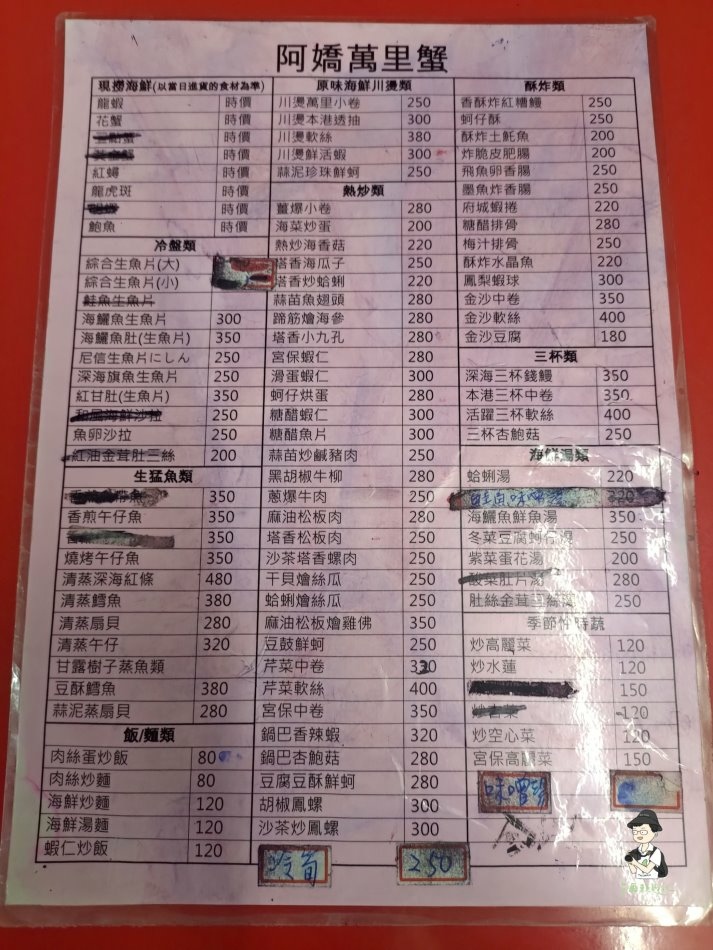 阿嬌萬里蟹
現撈海鮮(以當日進貨的食材為準)
龍蝦 時價
花蟹 時價
時價
時價
紅蟳 時價
龍虎斑 時價
時價
鮑魚 時價
冷盤類
綜合生魚片(大)
綜合生魚片(小)
鮭魚生魚片
海鱺魚生魚片 300
海鱺魚肚(生魚片) 350
尼信生魚片にしん 250
深海旗魚生魚片 250
紅甘肚(生魚片) 350
和風海鮮沙拉 250
魚卵沙拉 250
紅油金茸肚三絲 200
生猛魚類
350
香煎午仔魚 350
350
燒烤午仔魚 350
清蒸深海紅條 480
清蒸鱈魚 380
清蒸扇貝 280
清蒸午仔 320
甘露樹子蒸魚類
豆酥鱈魚 380
蒜泥蒸扇貝 280
飯/麵類
肉絲蛋炒飯 80
肉絲炒麵 80
海鮮炒麵 120
海鮮湯麵 120
蝦仁炒飯 120
原味海鮮川燙類
川燙萬里小卷 250
川燙本港透抽 300
川燙軟絲 380
川燙鮮活蝦 300
蒜泥珍珠鮮蚵 250
熱炒類
薑爆小卷 280
海菜炒蛋 200
熱炒海香菇 220
塔香海瓜子 250
塔香炒蛤蜊 220
蒜苗魚翅頭 280
蹄筋燴海參 280
塔香小九孔 280
宮保蝦仁 280
滑蛋蝦仁 300
蚵仔烘蛋 280
糖醋蝦仁 300
糖醋魚片 300
蒜苗炒鹹豬肉 250
黑胡椒牛柳 280
蔥爆牛肉 250
麻油松板肉 280
塔香松板肉 250
沙茶塔香螺肉 250
干貝燴絲瓜 250
蛤蜊燴絲瓜 250
麻油松板燴雞佛 350
豆鼓鮮蚵 250
芹菜中卷 320
芹菜軟絲 400
宮保中卷 350
鍋巴香辣蝦 320
鍋巴杏鮑菇 280
豆腐豆酥鮮蚵 280
胡椒鳳螺 300
沙茶炒鳳螺 300
冷筍 250
酥炸類
香酥炸紅糟鰻 250
蚵仔酥 250
酥炸土魠魚 200
炸脆皮肥腸 200
飛魚卵香腸 250
墨魚炸香腸 250
府城蝦捲 220
糖醋排骨 280
梅汁排骨 250
酥炸水晶魚 220
鳳梨蝦球 300
金沙中卷 350
金沙軟絲 400
金沙豆腐 180
三杯類
深海三杯錢鰻 350
本港三杯中卷 350
活躍三杯軟絲 400
三杯杏鮑菇 250
海鮮湯類
蛤蜊湯 220
鮭魚味噌湯 220
海鱺魚鮮魚湯 350
冬菜豆腐蚵仔湯 250
紫菜蛋花湯 200
酸菜肚片湯 280
肚絲金茸三絲羹 250
季節性時蔬
炒高麗菜 120
炒水蓮 120
150
120
炒空心菜 120
宮保高麗菜 150
味噌湯